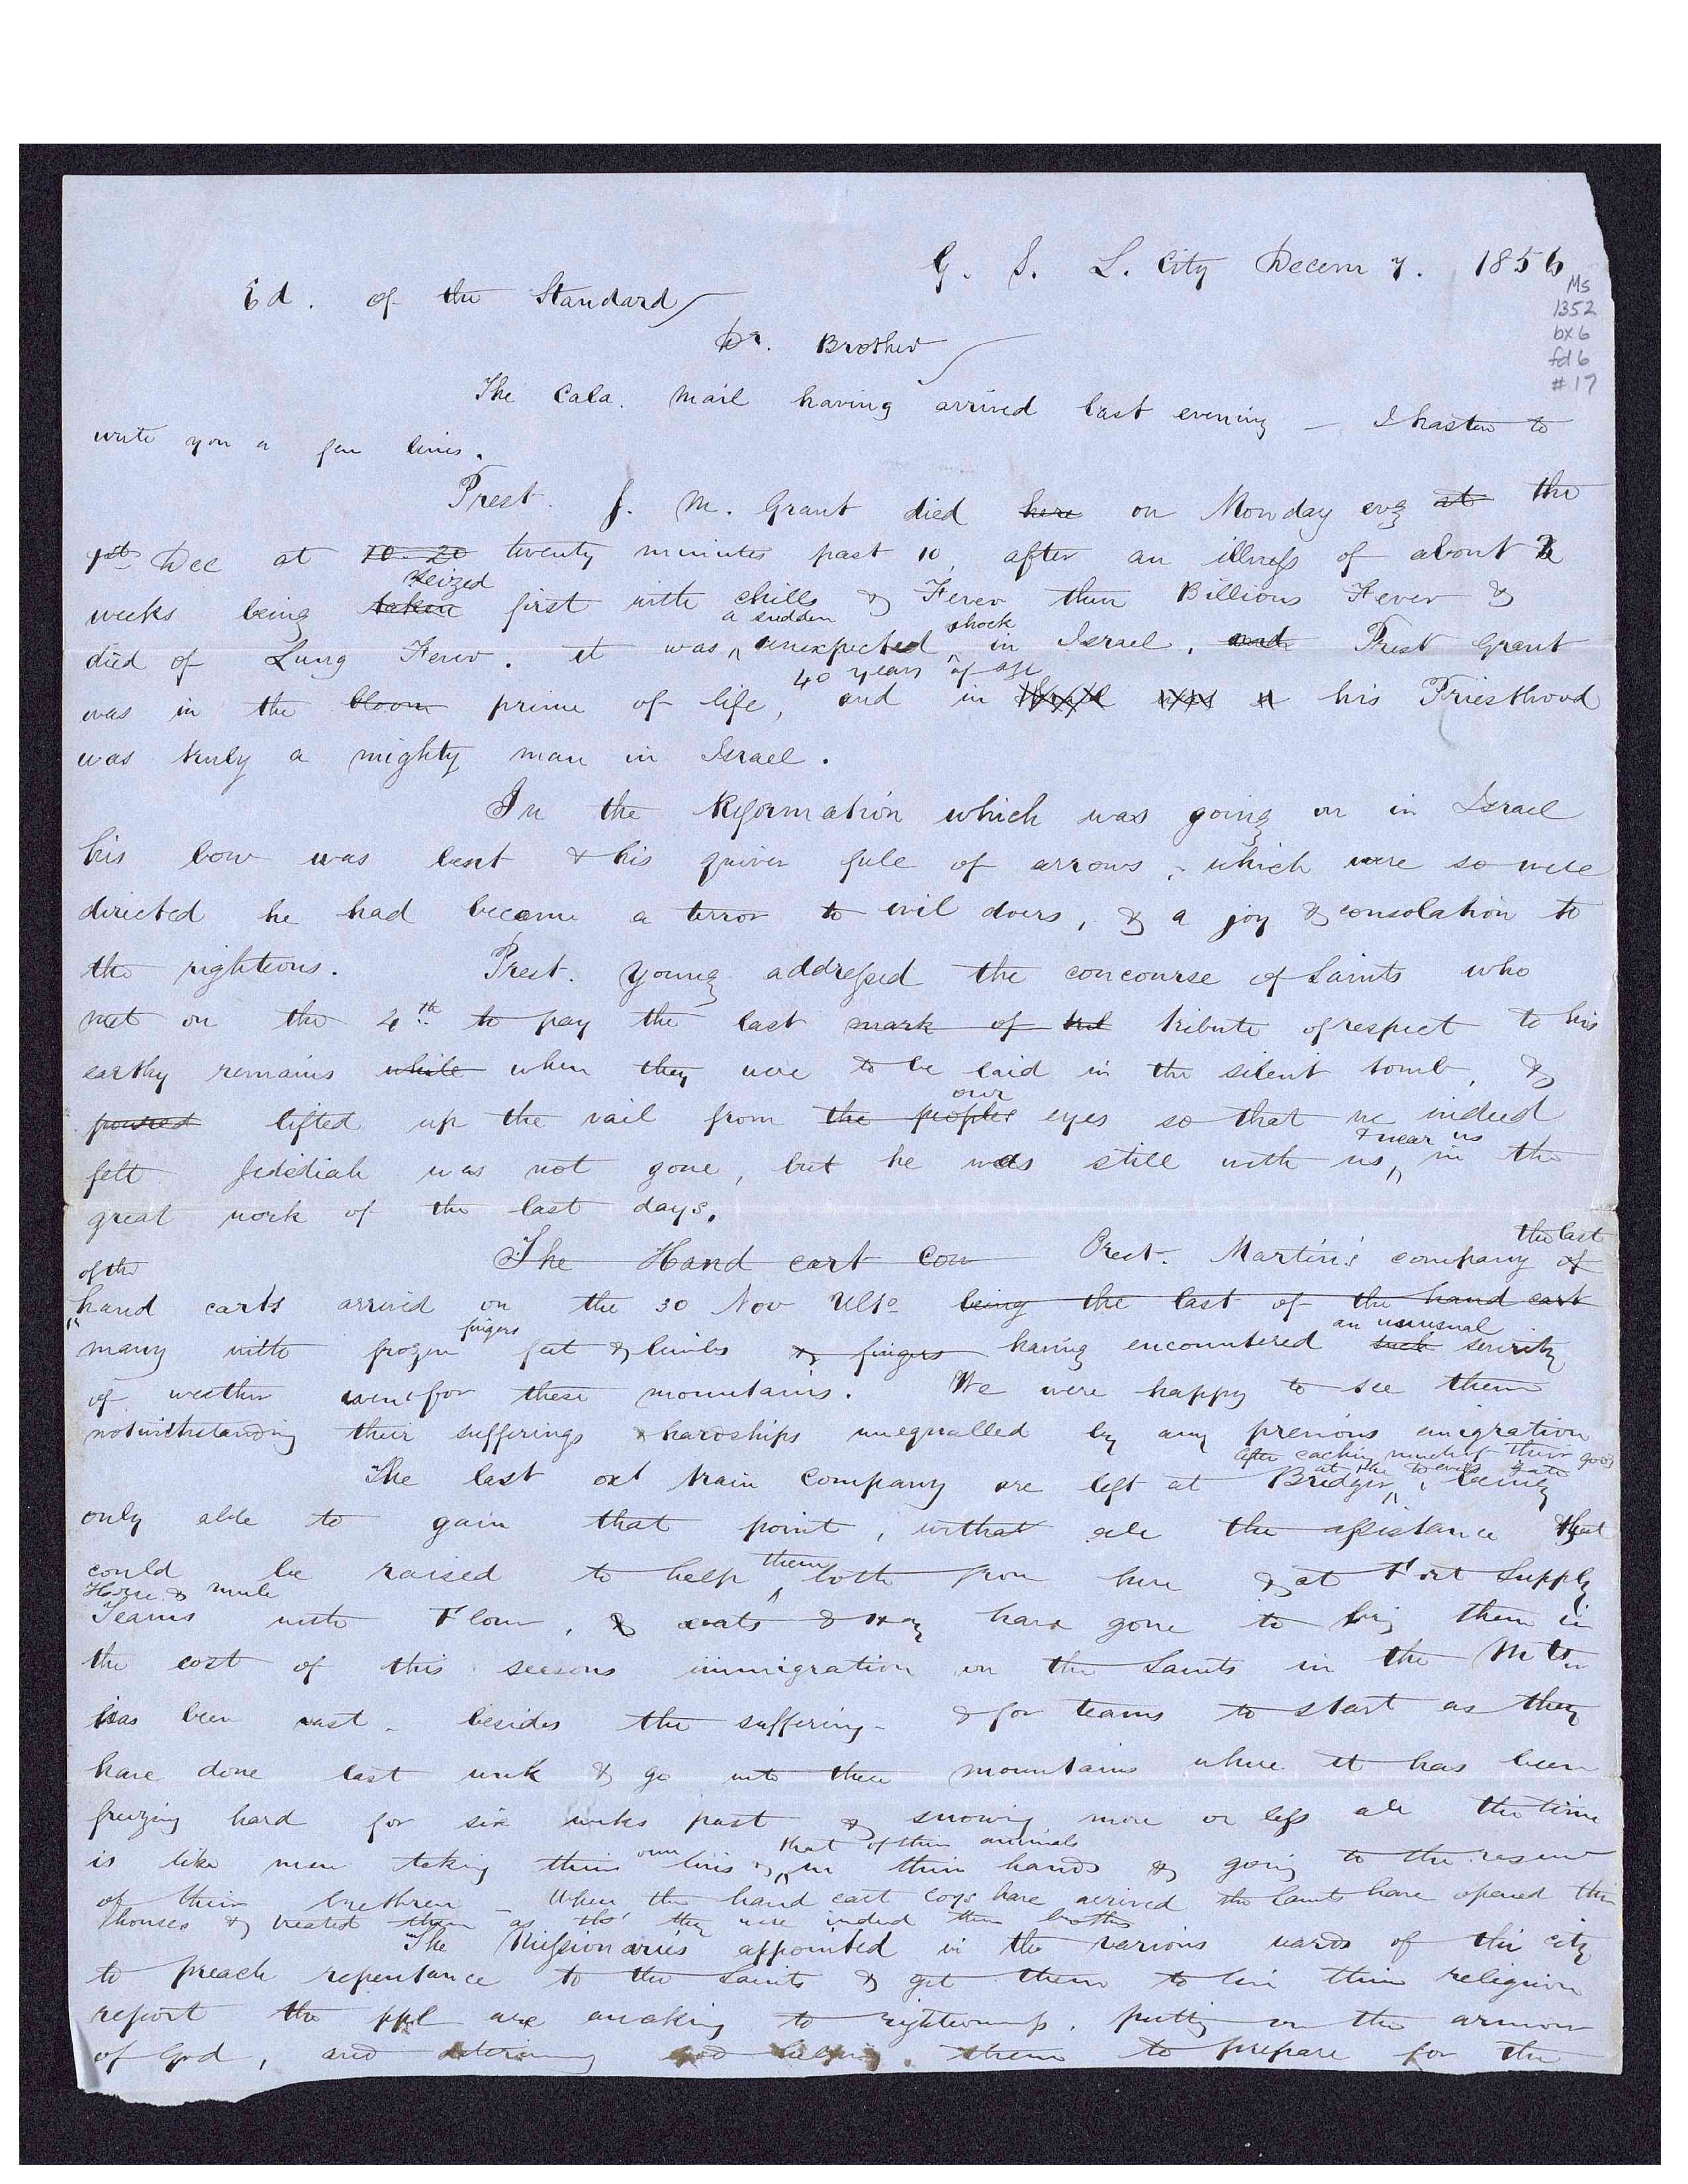 G. S. L. City Decem 7. 1856
Ms
1352
bx 6
fd 6
# 17
Ed. of the Standard
Dr. Brother
The Cala. Mail having arrived last evening – I hasten to
write you a few lines.
Prest. J. M. Grant died here on Monday evg at the
1st Dec at 10-20 twenty minutes past 10, after an illness of about 2
seized
weeks being taken first with chills & Fever then Billious Fever &
a sudden shock
died of Lung Fever. it was unexpected in Israel, and Prest Grant
40 years of age
was in the bloom prime of life, and in his Priesthood
was truly a mighty man in Israel.
In the Reformation which was going on in Israel
his bow was bent & his quiver full of arrows, which were so well
directed he had become a terror to evil doers, & a joy & consolation to
the righteous. Prest. Young addressed the concourse of Saints who
met on the 4th to pay the last mark of tribute of respect to his
earthy remains while when they were to be laid in the silent tomb, &
our
poured lifted up the vail from the peoples eyes so that we indeed
& near us
felt Jedediah was not gone, but he was still with us, in the
great work of the last days.
the last
The Hand cart Com Prest. Martin's company of
of the
hand carts arrived on the 30 Nov Ulto being the last of the hand cart
fingers an unusual
many with frozen feet & limbs & fingers having encountered such severity
of weather even for these mountains. We were happy to see them
notwithstanding their sufferings & hardships unequalled by any previous emigration
after caching much of their goods
at the Devils Gate
The last ox train company are left at Bridger, being
only able to gain that point, with all the assistance that
them
could be raised to help both from here & at Fort Supply
Horse & mule
Teams with Flour, & oats & Hay have gone to brg them in
the cost of this seasons immigration on the Saints in the Mts
has been vast – besides the suffering – & for teams to start as they
have done last week & go into these mountains where it has been
freezing hard for six weeks past & snowing more or less all the time
own that of their animals
is like men taking their lives & in their hands & going to the rescue
of their brethren – When the hand cart coys have arrived the Saints have opened their
houses & treated them as tho' they were indeed their brothers
The Missionaries appointed in the various wards of this city
to preach repentance to the Saints & get them to live their religion
report the ppl are awaking to righteousness, putting on the armour
of God, and God helping them to prepare for the